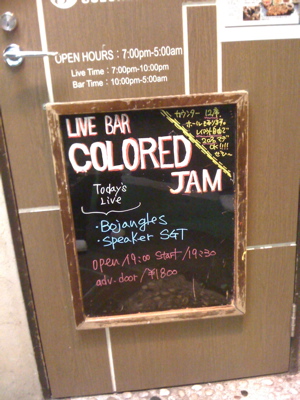 OPEN HOURS : 7:00pm-5:00am
Live Time : 7:00pm-10:00pm
Bar Time : 10:00pm-5:00am
カウンター 12席
LIVE BAR
COLORED
JAM
Today's
Live
・Bojangles
・Speaker SGT
open/19:00 start/19:30
adv.door/¥1800